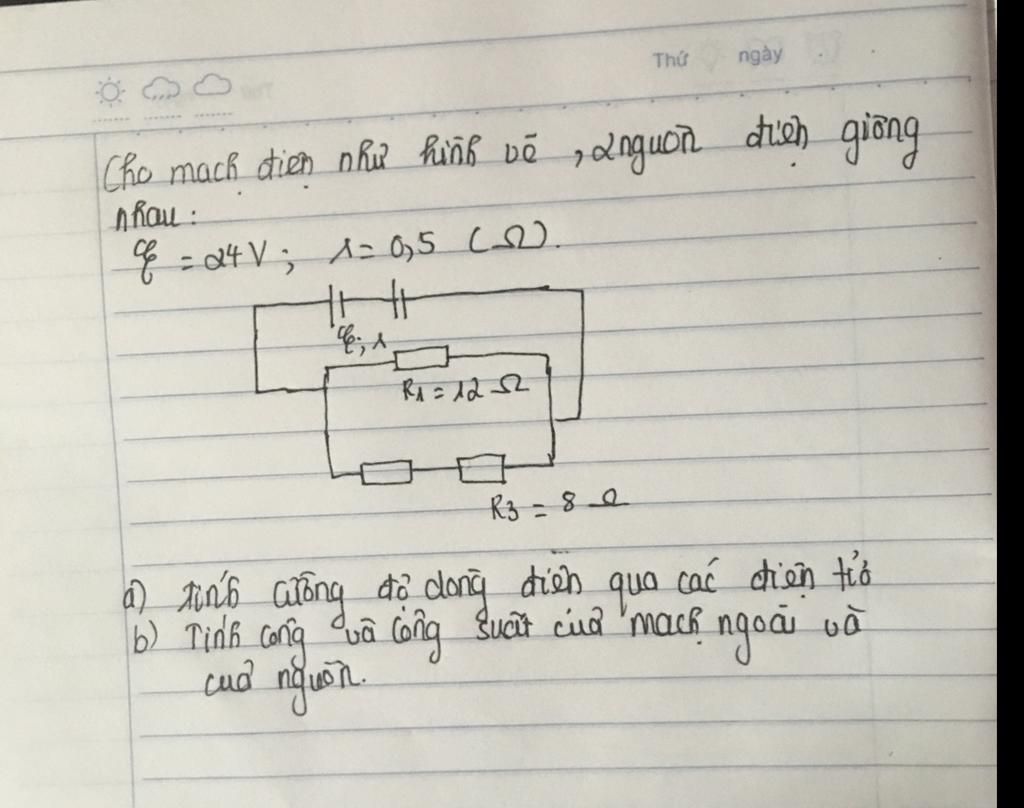 Thứ ngày
Cho mạch điện như hình vẽ, 2 nguồn điện giống
nhau:
ξ = 24V; r = 0,5 (Ω).
ξ; r
R1 = 12 Ω
R3 = 8 Ω
a) Tính cường độ dòng điện qua các điện trở
b) Tính công và công suất của mạch ngoài và
của nguồn.